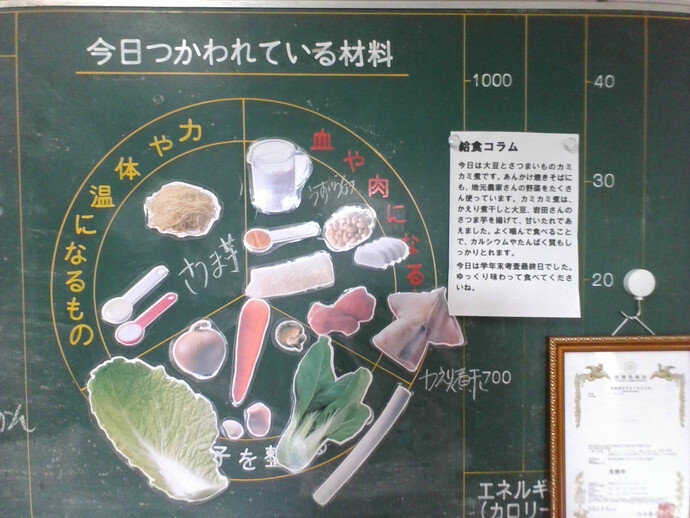 今日つかわれている材料
体や力
温になるもの
血や肉になる
子を整
さつま芋
かえり煮干
700
1000
40
30
20
エネルギ
(カロリー
給食コラム
今日は大豆とさつまいものカミ
カミ煮です。あんかけ焼きそばに
も、地元農家さんの野菜をたくさ
ん使っています。カミカミ煮は、
かえり煮干しと大豆、岩田さんの
さつま芋を揚げて、甘いたれであ
えました。よく噛んで食べること
で、カルシウムやたんぱく質もし
っかりとれます。
今日は学年末考査最終日でした。
ゆっくり味わって食べてください
ね。